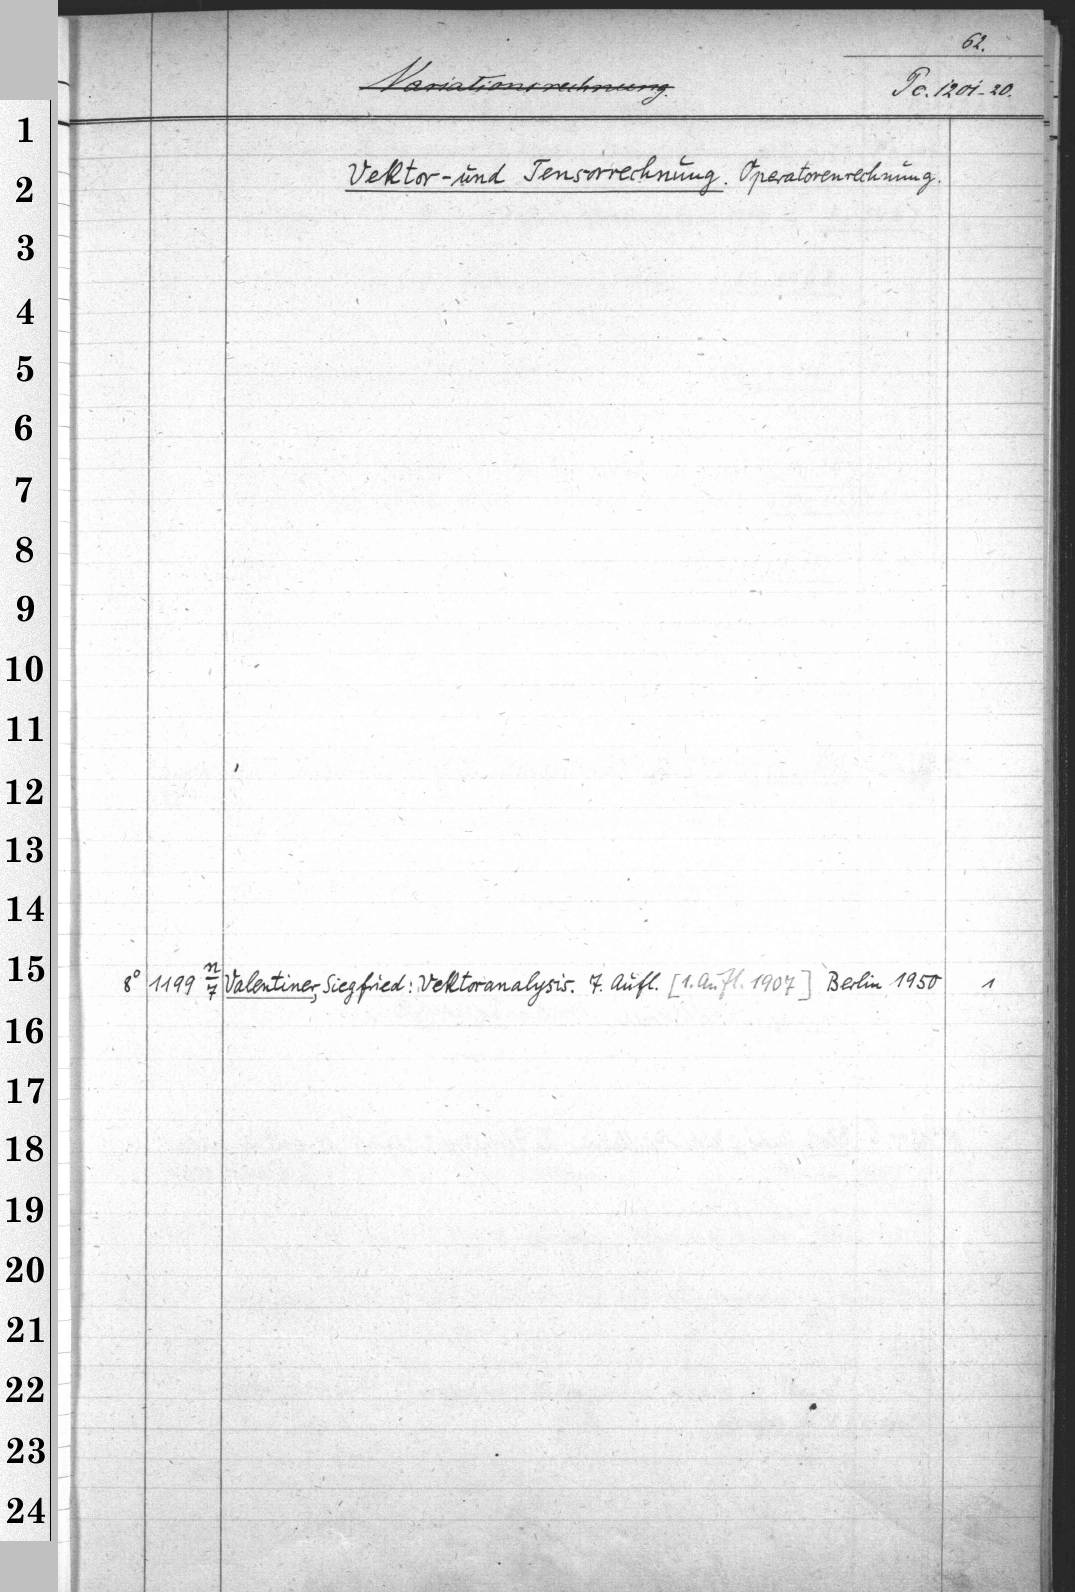 62.
~~Variationsrechnung.~~ Pc. 1201-20.
1
2 Vektor- und Tensorrechnung. Operatorenrechnung.
3
4
5
6
7
8
9
10
11
12
13
14
15 8° 1199 n/7 Valentiner, Siegfried: Vektoranalysis. 7. Aufl. [1. Aufl. 1907] Berlin 1950 1
16
17
18
19
20
21
22
23
24